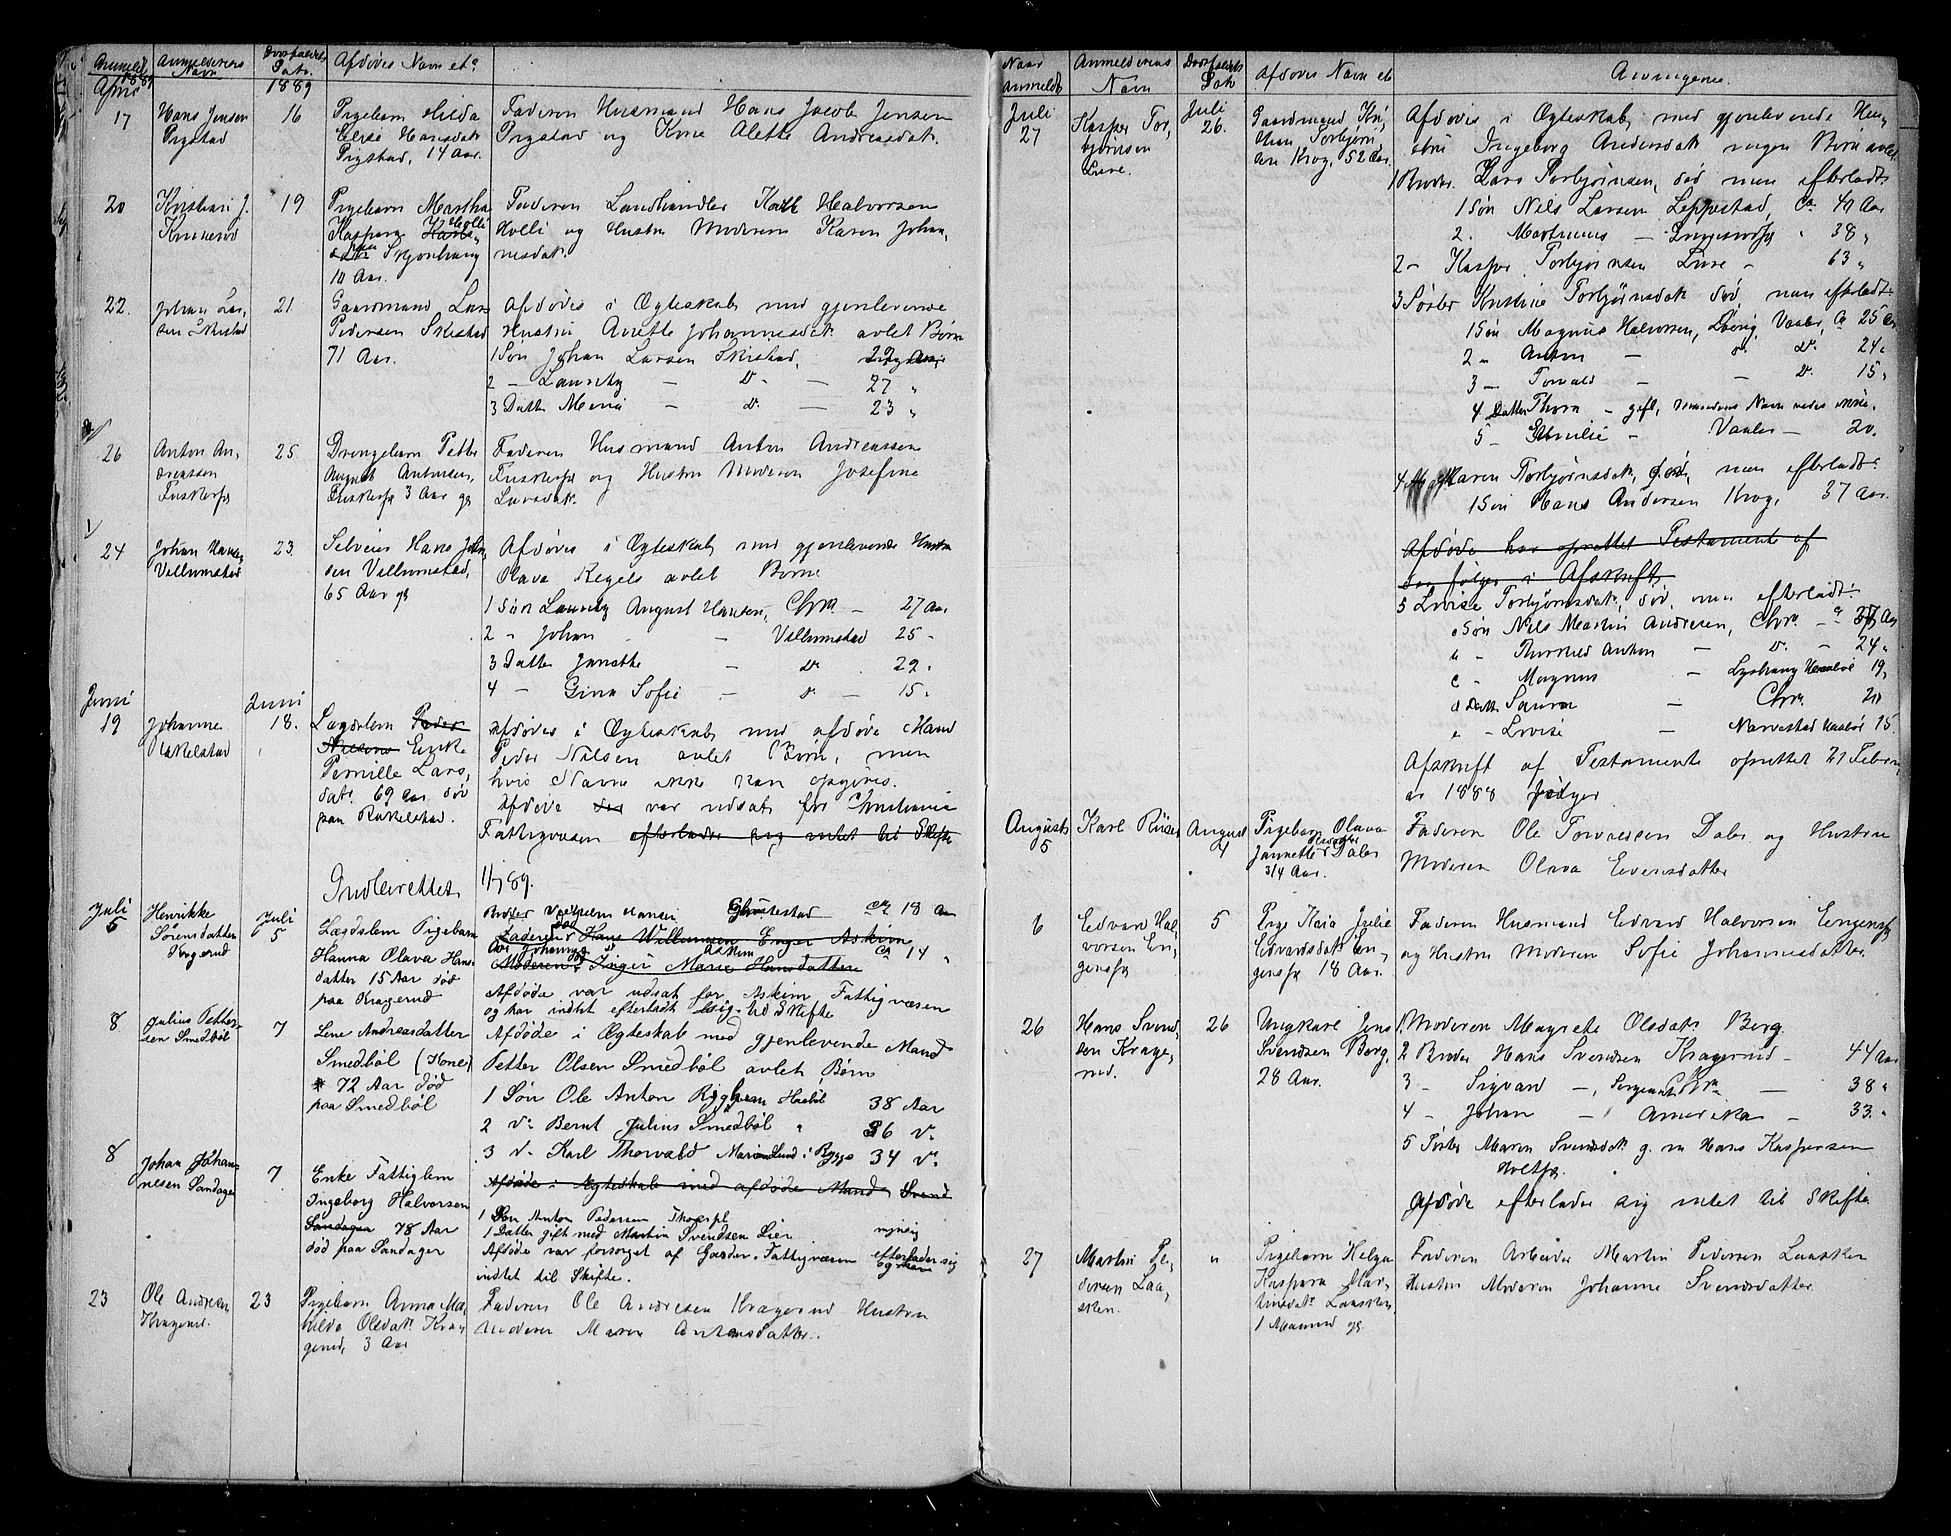 Anmeldt
1889
Anmelderens
Navn
Dødsfaldets
Dato
1889
Afdødes Navn etc
April
17
Hans Jensen
Pigstad
16
Pigebarn Hilda
Hansdatr
Pigstad, 14 Aar.
Faderen Husmand Hans Jacob Jensen
Pigstad og Kone Alette Andreasdatr.
20
Kristian J.
19
Pigebarn Martha
Kaspara Holli
10 Aar.
Faderen Landhandler Karl Halvorsen
Holli og Hustru Moderen Karen Johan,
nesdatr.
22.
Johan Lar,
sen Skistad
21.
Gaardmand Lars
Pedersen Skistad
71 Aar.
Afdødes i Ægteskab med gjenlevende
Hustru Anette Johannesdatr avlet Børn
1 Søn Johan Larsen Skistad,
2 — Lauritz — do — 27 "
3 Datter Marie — do — 23 "
26
Anton An,
dreassen
25.
Drengebarn Petter
August Antonsen,
3 Aar gl
Faderen Husmand Anton Andreassen
og Hustru Moderen Josefine
Larsdatr.
24
Johan Hansen
Villumstad
23.
Selveier Hans Johan,
sen Villumstad,
65 Aar gl
Afdødes i Ægteskab med gjenlevende Hustru
Olava Regels avlet Børn
1 Søn Lauritz August Hansen, Chra — 27 Aar
2 " Johan — Villumstad 25 "
3 Datter Janette — do 22 "
4 — Gina Sofie — do — 15 "
Juni
19
Johanne
Rakelstad
Juni
18.
Lægdslem Peder
Nilsens Enke
Pernille Lars,
datr. 69 Aar død
paa Rakelstad.
Afdødes i Ægteskab med afdøde Mand
Peder Nilsen avlet Børn, men
hvis Navn ikke kan opgives.
Afdøde var udsat for Christiania
Fattigvæsen efterlader sig intet til Skifte
Indberettet 1/7 89.
Juli
5
Henrikke
Sørensdatter
Kragerud
Juli
5
Lægdslem Pigebarn
Hanna Olava Hans
datter 15 Aar død
paa Kragerud
Broder Hansen ca 18 Aar
Faderen Hans Willumsen Enger Askim
Askim ca 14 "
Moderen Inger Marie Hansdatter
Afdøde var udsat for Askim Fattigvæsen
og har intet efterladt sig til Skifte
8
Julius Petter-
sen Smedbøl
7
Lene Andreasdatter
Smedbøl (Kone)
72 Aar død
paa Smedbøl
Afdøde i Ægteskab med gjenlevende Mand
Petter Olsen Smedbøl avlet Børn
1 Søn Ole Anton 38 Aar
2 do Bernt Julius Smedbøl " 36 do
3 do Karl Thorvald i Rygge 34 do
8
Johan Johan-
nesen Sandager
7
Enke Fattiglem
Ingeborg Halvorsen
Sandager 78 Aar
død paa Sandager
Afdøde i Ægteskab med afdøde Mand Svend
1 Søn Anton Pedersen
1 Datter gift med Martin Svendsen Lier myndig
Afdøde var forsørget af Garder Fattigvæsen efterlader sig
intet til Skifte.
23
Ole Andresen
Kragerud.
23
Pigebarn Anna Ma,
hilda Olsdatr Kra,
gerud, 3 Aar
Faderen Ole Andresen Kragerud Hustru
Moderen Maren Antonsdatter.
Naar
anmeldt
Anmelderens
Navn
Dødsfaldets
Dato
Afdødes Navn etc
Arvingerne.
Juli
27
Kasper Tor,
bjørnsen
Juli
26.
Gaardmand Kri,
stian Torbjørn,
sen Krog, 52 Aar.
Afdødes i Ægteskab med gjenlevende Hu,
stru Ingeborg Andersdatr ingen Børn avlet.
1 Broder. Lars Torbjørnsen, død men efterladt:
1 Søn Nils Larsen Leppestad, ca 41 Aar
2. Martinius — " 38 "
2 — Kasper Torbjørnsen — 63 "
3 Søster Kristine Torbjørnsdatr død, men efterladt
1 Søn Magnus Halvorsen, Vaaler, ca 25 Aar
2 — Anton — do. do. 24 "
3 — Torvald — — do. 15 "
4 Datter Thora — gift, Mandens Navn vides ikke.
5 — Emilie — Vaaler — 20.
4 Maren Torbjørnsdatr, død, men efterladt
1 Søn Hans Andersen Krog, 37 Aar.
Afdøde har oprettet Testamente af
som følger i Afskrift.
5 Lovise Torbjørnsdatr, død, men efterladt:
a Søn Nils Martin Andresen, Chra — ca 27 Aar
b — Thorvald Anton — do. — 24 "
c — Magnus — 19,
d Datter Laura — Chra 21
e — Lovise — Narvestad Vaaler 15.
Afskrift af Testamente oprettet 21 Febru,
ar 1888 følger.
August
5
Karl
August
4
Pigebarn Olava
Jannette Olesdatter Daler
3/4 Aar.
Faderen Ole Torvaldsen Daler og Hustru
Moderen Olava Evensdatter
6
Edvard Hal,
vorsen En,
5
Pige Kaia Julie
Edvardsdatr
18 Aar.
Faderen Husmand Edvard Halvorsen
og Hustru Moderen Sofie Johannesdatter.
26
Hans Svend,
sen Krage,
rud.
26
Ungkarl Jens
Svendsen Borg,
28 Aar.
1. Moderen Magrete Olsdatr Borg.
2 Broder Hans Svendsen Kragerud — 44 Aar
3 — Sigvard —, Sergeant Chra — 38 "
4 — Johan — Amerika — 33. "
5 Søster Maren Svendsdatr g. m Hans Kaspersen
Afdøde efterlader sig intet til Skifte
27
Martin Pe,
dersen Laa,
sken.
"
Pigebarn Helga
Kaspara Mar,
tinsdatr Laasken
1 Maaned gl.
Faderen Arbeider Martin Pedersen Laasken
Hustru Moderen Johanne Svendsdatter.